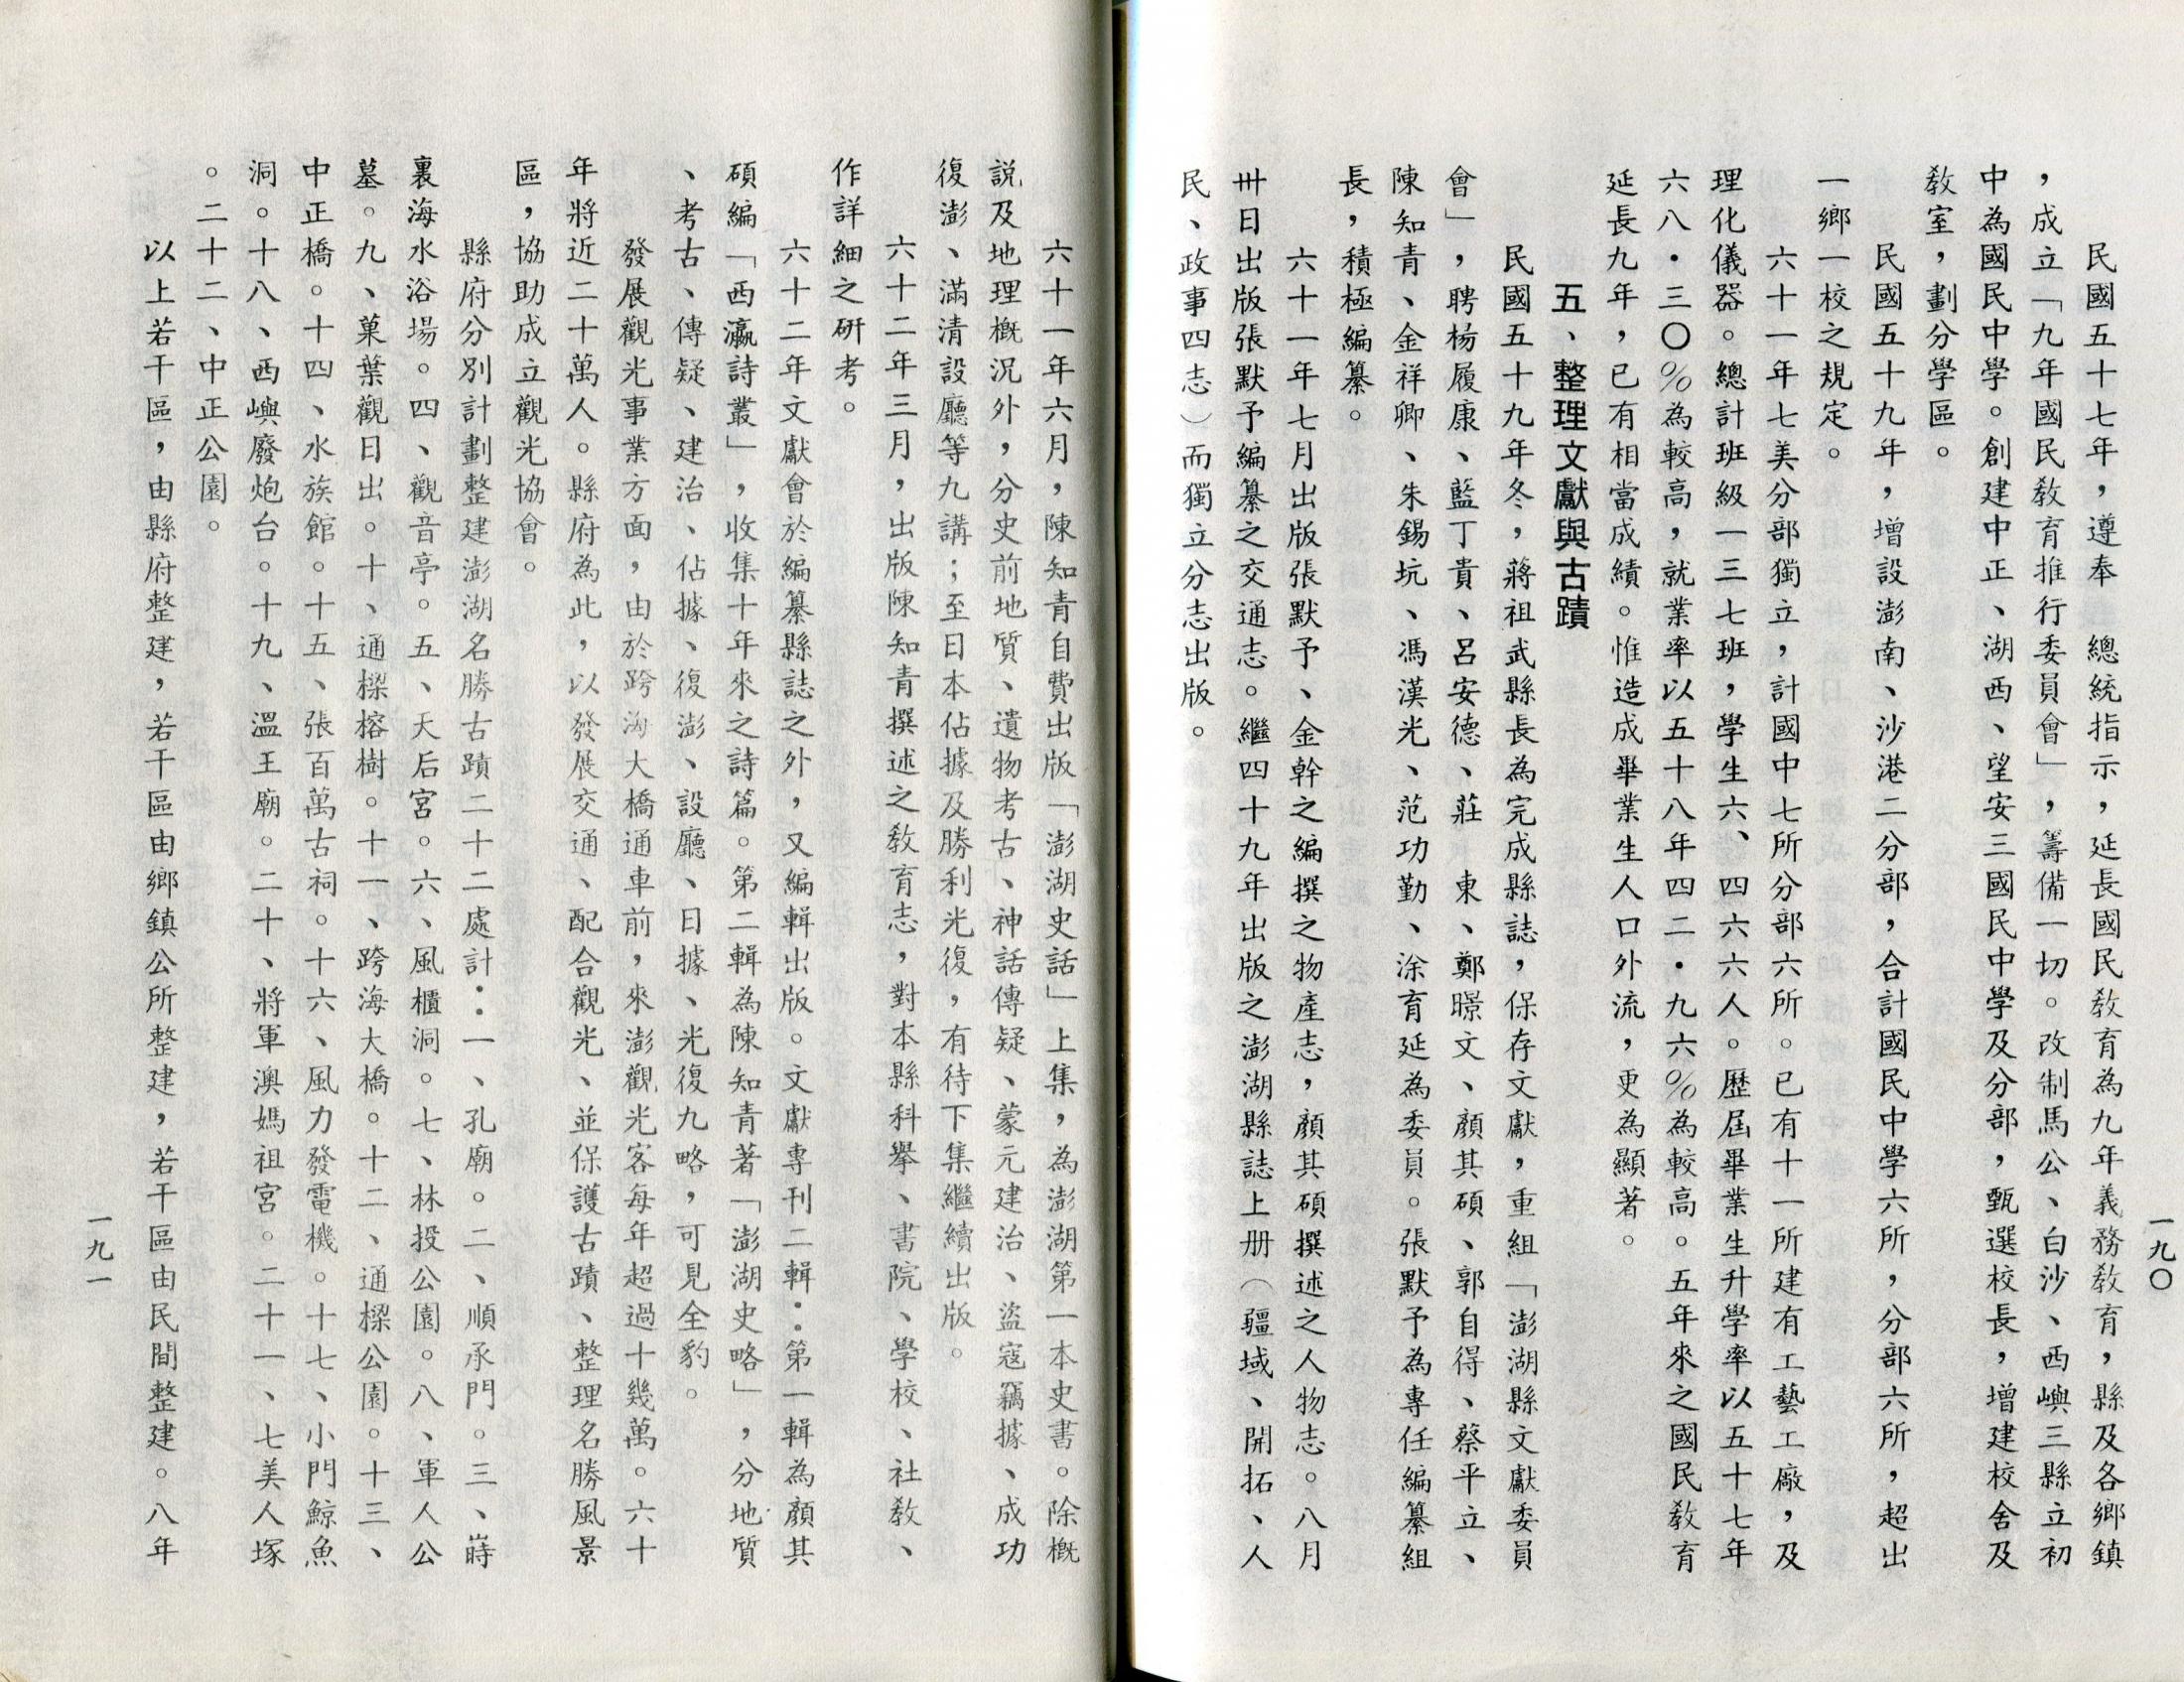 一九〇
民國五十七年，遵奉　總統指示，延長國民教育為九年義務教育，縣及各鄉鎮
，成立「九年國民教育推行委員會」，籌備一切。改制馬公、白沙、西嶼三縣立初
中為國民中學。創建中正、湖西、望安三國民中學及分部，甄選校長，增建校舍及
教室，劃分學區。
民國五十九年，增設澎南、沙港二分部，合計國民中學六所，分部六所，超出
一鄉一校之規定。
六十一年七美分部獨立，計國中七所分部六所。已有十一所建有工藝工廠，及
理化儀器。總計班級一三七班，學生六、四六六人。歷屆畢業生升學率以五十七年
六八・三〇％為較高，就業率以五十八年四二・九六％為較高。五年來之國民教育
延長九年，已有相當成績。惟造成畢業生人口外流，更為顯著。
五、整理文獻與古蹟
民國五十九年冬，蔣祖武縣長為完成縣誌，保存文獻，重組「澎湖縣文獻委員
會」，聘楊履康、藍丁貴、呂安德、莊　東、鄭暻文、顏其碩、郭自得、蔡平立、
陳知青、金祥卿、朱錫坑、馮漢光、范功勤、涂育延為委員。張默予為專任編纂組
長，積極編纂。
六十一年七月出版張默予、金幹之編撰之物產志，顏其碩撰述之人物志。八月
卅日出版張默予編纂之交通志。繼四十九年出版之澎湖縣誌上册（疆域、開拓、人
民、政事四志）而獨立分志出版。
六十一年六月，陳知青自費出版「澎湖史話」上集，為澎湖第一本史書。除概
說及地理概況外，分史前地質、遺物考古、神話傳疑、蒙元建治、盜寇竊據、成功
復澎、滿清設廳等九講；至日本佔據及勝利光復，有待下集繼續出版。
六十二年三月，出版陳知青撰述之教育志，對本縣科舉、書院、學校、社教、
作詳細之研考。
六十二年文獻會於編纂縣誌之外，又編輯出版。文獻專刊二輯：第一輯為顏其
碩編「西瀛詩叢」，收集十年來之詩篇。第二輯為陳知青著「澎湖史略」，分地質
、考古、傳疑、建治、佔據、復澎、設廳、日據、光復九略，可見全豹。
發展觀光事業方面，由於跨沟大橋通車前，來澎觀光客每年超過十幾萬。六十
年將近二十萬人。縣府為此，以發展交通、配合觀光、並保護古蹟、整理名勝風景
區，協助成立觀光協會。
縣府分別計劃整建澎湖名勝古蹟二十二處計：一、孔廟。二、順承門。三、蒔
裏海水浴場。四、觀音亭。五、天后宮。六、風櫃洞。七、林投公園。八、軍人公
墓。九、菓葉觀日出。十、通樑榕樹。十一、跨海大橋。十二、通樑公園。十三、
中正橋。十四、水族館。十五、張百萬古祠。十六、風力發電機。十七、小門鯨魚
洞。十八、西嶼廢炮台。十九、溫王廟。二十、將軍澳媽祖宮。二十一、七美人塚
。二十二、中正公園。
以上若干區，由縣府整建，若干區由鄉鎮公所整建，若干區由民間整建。八年
一九一